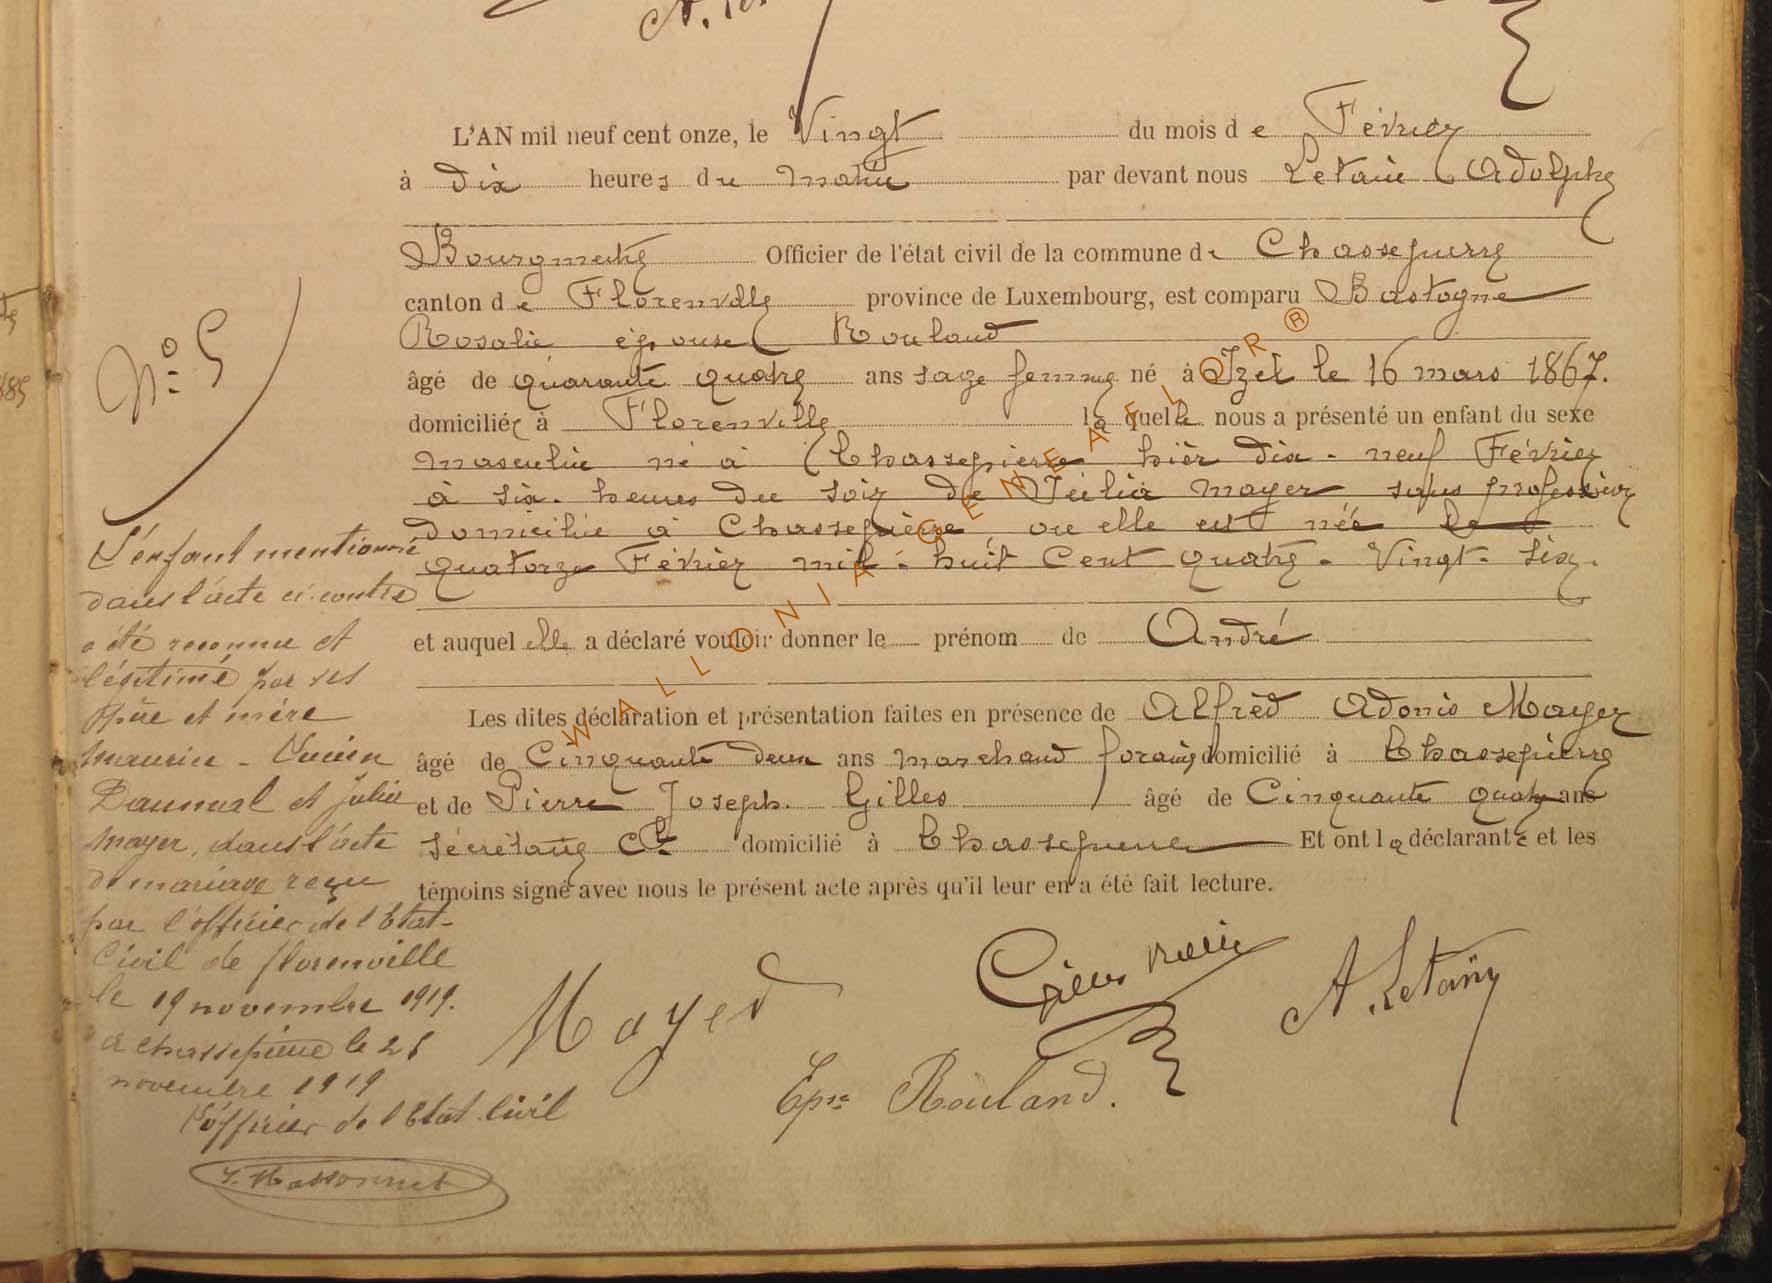 L'AN mil neuf cent onze, le Vingt du mois de Février
à dix heures du matin par devant nous Letaiè Adolphe
Bourgmestre Officier de l'état civil de la commune de Chassepierre
canton de Florenville province de Luxembourg, est comparu Bastogne
Rosalie épouse Rouland
âgé de quarante quatre ans sage femme né à Izel le 16 mars 1867.
domiciliée à Florenville laquelle nous a présenté un enfant du sexe
masculin né à Chassepierre hier dix-neuf Février
à six heures du soir de Julia Mayer sans profession
domicilié à Chassepierre, ou elle est née le
quatorze Février mil-huit Cent quatre-Vingt-six.
et auquel elle a déclaré vouloir donner le prénom de André
Les dites déclaration et présentation faites en présence de Alfred Adonis Mayer
âgé de Cinquante deux ans marchand forain, domicilié à Chassepierre
et de Pierre Joseph Gilles âgé de Cinquante quatre ans
sécrétaire Cl domicilié à Chassepierre Et ont la déclarante et les
témoins signé avec nous le présent acte après qu'il leur en a été fait lecture.
Mayer
A. Letainy
Epse Rouland.
No 5
L'enfant mentionné
dans l'acte ci-contre
a été reconnu et
légitimé par ses
père et mère
Maurice - Lucien
Daumal et Julia
Mayer, dans l'acte
de mariage reçu
par l'officier de l'Etat-
Civil de florenville
le 19 novembre 1919.
a chassepierre le 26
novembre 1919
L'officier de l'Etat-Civil
WALLONIA-GENEAFLOR®